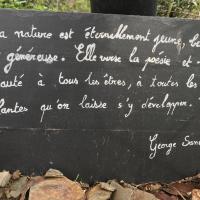 a nature est éternellement jeune, b
généreuse. Elle verse la poésie et
auté à tous les êtres, à toutes les
lantes qu'on laisse s'y développer.
George San